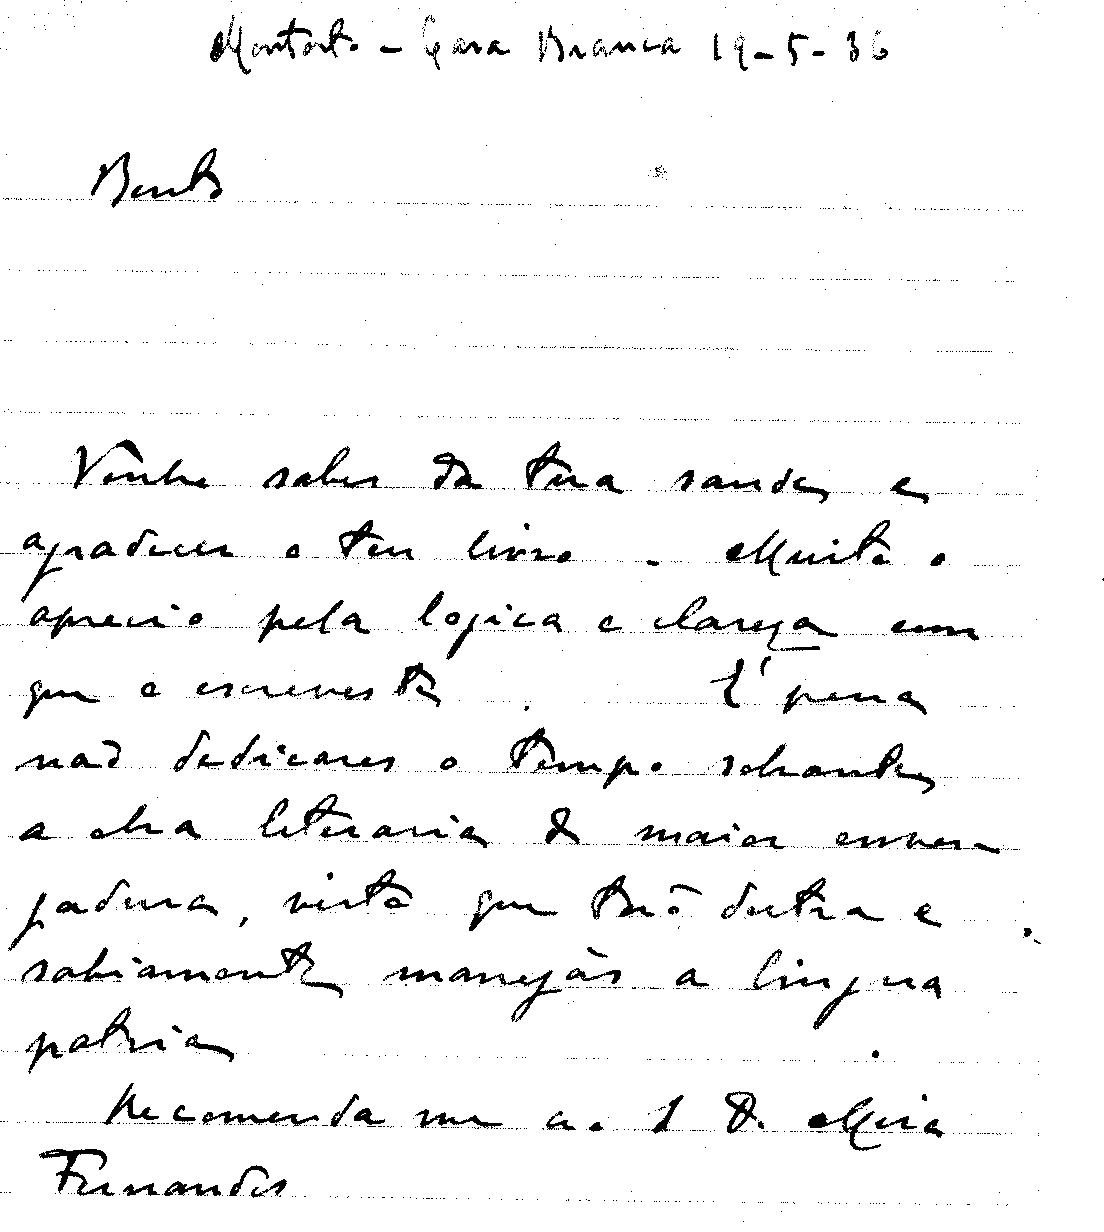 Montoito - Casa Branca 19-5-36
Bento
Venho saber da tua saude e
agradecer o teu livro. Muito o
aprecio pela logica e clareza com
que o escreveste. E' pena
não dedicares o tempo sobrante
a obra literaria de maior enver
gadura, visto que tão doutra e
sabiamente manejàs a lingua
patria.
Recomenda me ao D. Mira
Fernandes